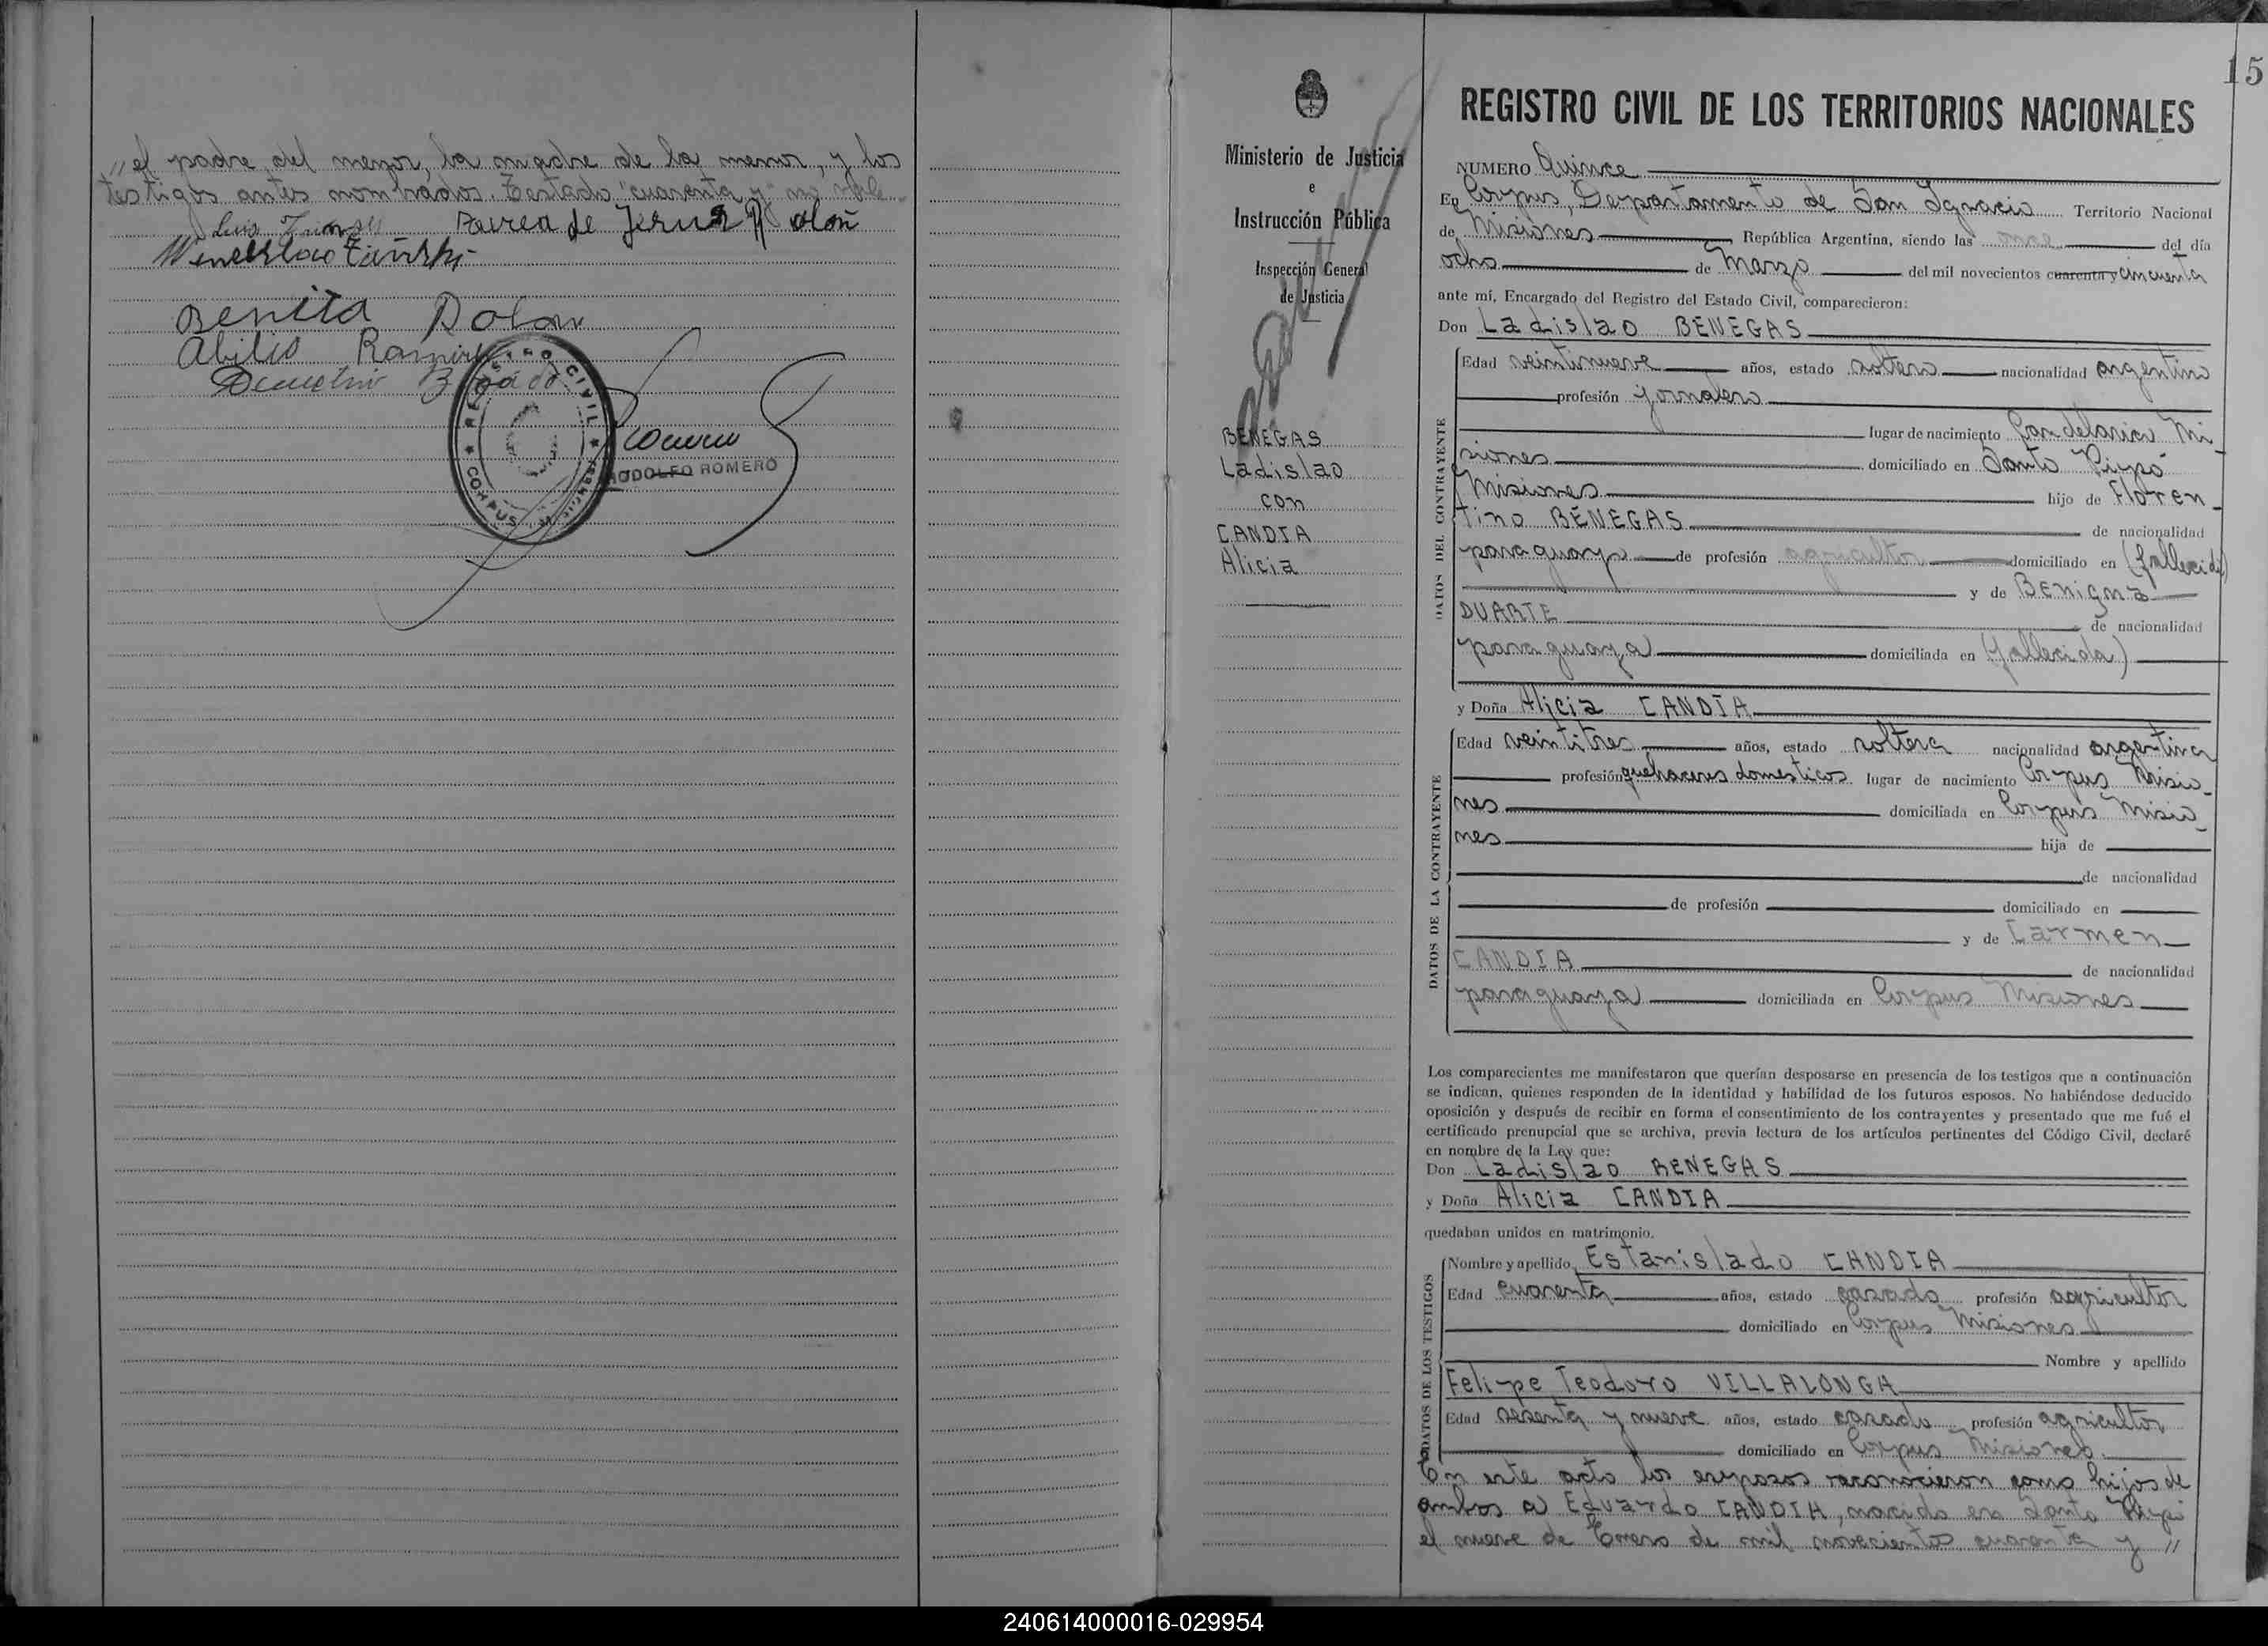 „ el padre del menor, la madre de la menor, y los
testigos antes nombrados. Testado "cuarenta y" no vale
Luis
Aurea de Jesus Rolon
Benita Rolon
Abilio Ramirez
REGISTRO CIVIL
CORPUS
RODOLFO ROMERO
15
Ministerio de Justicia
e
Instrucción Pública
Inspección General
de Justicia
BENEGAS
Ladislao
con
CANDIA
Alicia
REGISTRO CIVIL DE LOS TERRITORIOS NACIONALES
NUMERO Quince
En Corpus, Departamento de San Ignacio Territorio Nacional
de Misiones República Argentina, siendo las once del día
ocho de Marzo del mil novecientos cuarenta y cincuenta
ante mí, Encargado del Registro del Estado Civil, comparecieron:
Don Ladislao BENEGAS
DATOS DEL CONTRAYENTE
Edad veintinueve años, estado soltero nacionalidad argentino
profesión jornalero
lugar de nacimiento Candelaria Mi
siones domiciliado en Santo Pipó
Misiones hijo de Floren
tino BENEGAS de nacionalidad
paraguayo de profesión agricultor domiciliado en (fallecido)
y de Benigna
DUARTE de nacionalidad
paraguaya domiciliada en (fallecida)
y Doña Alicia CANDIA
DATOS DE LA CONTRAYENTE
Edad veintitres años, estado soltera nacionalidad argentina
profesión quehaceres domesticos lugar de nacimiento Corpus Misio
nes domiciliada en Corpus Misio
nes hija de
de nacionalidad
de profesión domiciliado en
y de Carmen
CANDIA de nacionalidad
paraguaya domiciliada en Corpus Misiones
Los comparecientes me manifestaron que querían desposarse en presencia de los testigos que a continuación
se indican, quienes responden de la identidad y habilidad de los futuros esposos. No habiéndose deducido
oposición y después de recibir en forma el consentimiento de los contrayentes y presentado que me fué el
certificado prenupcial que se archiva, previa lectura de los artículos pertinentes del Código Civil, declaré
en nombre de la Ley que:
Don Ladislao BENEGAS
y Doña Alicia CANDIA
quedaban unidos en matrimonio.
DATOS DE LOS TESTIGOS
Nombre y apellido Estanislado CANDIA
Edad cuarenta años, estado casado profesión agricultor
domiciliado en Corpus Misiones
Nombre y apellido
Felipe Teodoro VILLALONGA
Edad sesenta y nueve años, estado casado profesión agricultor
domiciliado en Corpus Misiones.
En este acto los esposos reconocieron como hijos de
ambos a Eduardo CANDIA, nacido en Santo Pipó
el nueve de Enero de mil novecientos cuarenta y „
240614000016-029954